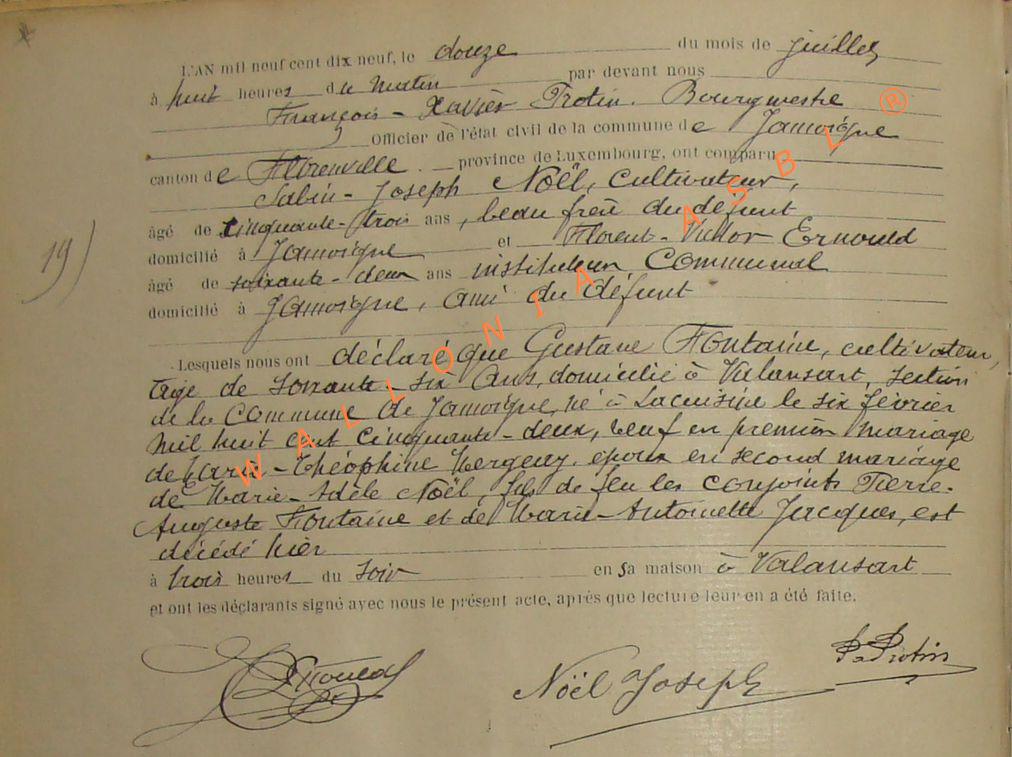 L'AN mil neuf cent dix neuf, le douze du mois de juillet
à huit heures du matin par devant nous
François-Xavier Protin. Bourgmestre
Officier de l'état civil de la commune de Jamoigne
canton de Florenville. province de Luxembourg, ont comparu
Sabin-Joseph Noël, cultivateur,
âgé de cinquante-trois ans, beau frère du défunt
domicilié à Jamoigne et Florent-Victor Ernould
âgé de soixante-deux ans instituteur communal
domicilié à Jamoigne, ami du défunt
19)
Lesquels nous ont déclaré que Gustave Fontaine, cultivateur,
âgé de soixante-six ans, domicilié à Valansart, section
de la commune de Jamoigne, né à Lacuisine le six février
mil huit cent cinquante-deux, veuf en premier mariage
de Marie-Théophine, époux en second mariage
de Marie-Adèle Noël, fils de feu les conjoints Pierre-
Auguste Fontaine et de Marie-Antoinette Jacques, est
décédé hier
à trois heures du soir en sa maison à Valansart
et ont les déclarants signé avec nous le présent acte, après que lecture leur en a été faite.
Noël Joseph
Protin
WALLONIA ASBL ®